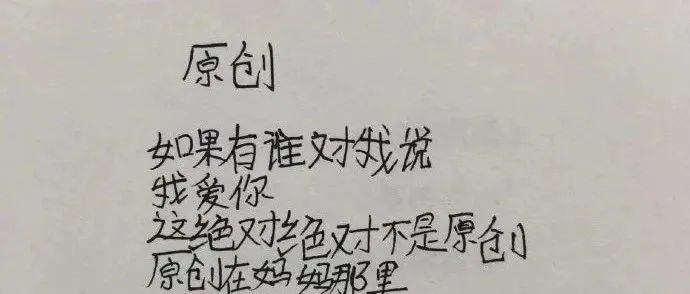 原创
如果有谁对我说
我爱你
这绝对绝对不是原创
原创在妈妈那里